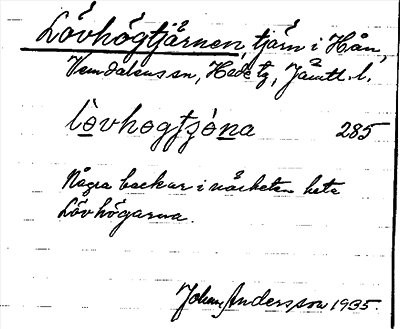 Lövhögtjärnen, tjärn i Hån,
Vemdalens sn, Hede tg, Jämtl. l.
lòvhøgtjǫ̀na 285
Några backar i närheten heta
Lövhögarna.
Johan Andersson 1935.